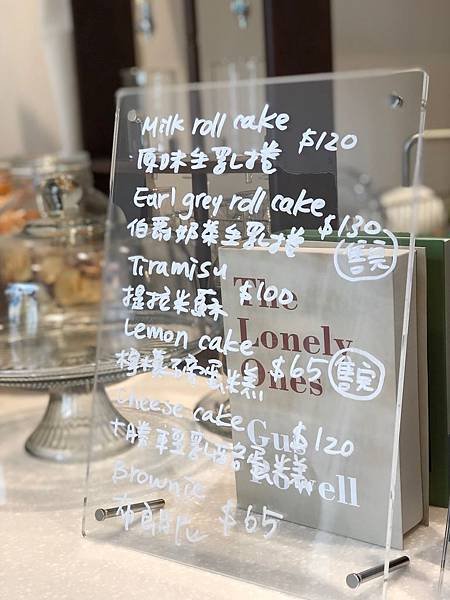 Milk roll cake $120
原味生乳捲
Earl grey roll cake
伯爵奶茶生乳捲 $130
售完
Tiramisu
提拉米蘇 $100
Lemon cake
檸檬磅蛋糕 $65 售完
Cheese cake $120
十勝輕乳酪蛋糕
Brownie
布朗尼 $65
The
Lonely
Ones
Gus
Powell